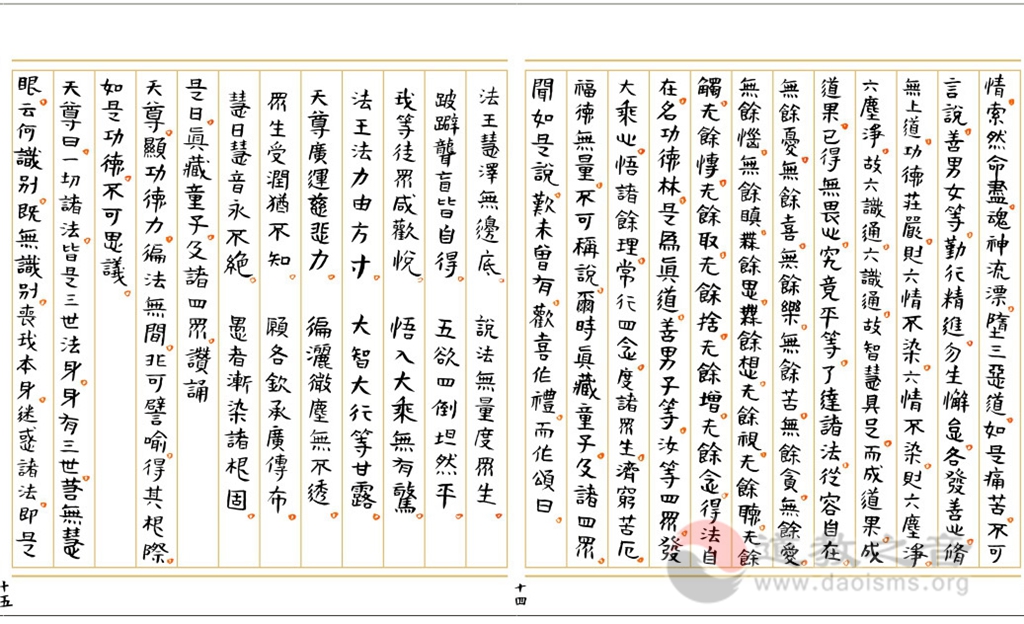 情索然命盡魂神流漂墮三惡道如是痛苦不可
言說善男女等勤行精進勿生懈怠各發善心脩
無上道功德莊嚴則六情不染六情不染則六塵淨
六塵淨故六識通六識通故智慧具足而成道果成
道果已得無畏心究竟平等了達諸法從容自在
無餘憂無餘喜無餘樂無餘苦無餘貪無餘愛
無餘惱無餘瞋無餘思無餘想无餘視无餘聽无餘
觸无餘慱无餘取无餘捨无餘增无餘念得法自
在名功德林是爲眞道善男子等汝等四眾發
大乘心悟諸餘理常行四念度諸眾生濟窮苦厄
福德無量不可稱說爾時眞藏童子及諸四眾
聞如是說歎未曾有歡喜作禮而作頌曰
十四
法王慧澤無邊底 說法無量度眾生
跛躃聾盲皆自得 五欲四倒坦然平
我等徒眾咸歡悅 悟入大乘無有驚
法王法力由方寸 大智大行等甘露
天尊廣運慈悲力 徧灑微塵無不透
眾生受潤猶不知 願各欽承廣傳布
慧日慧音永不絕 愚者漸染諸根固
是日眞藏童子及諸四眾讚誦
天尊顯功德力徧法無間非可譬喻得其根際
如是功德不可思議
天尊曰一切諸法皆是三世法身身有三世善無慧
眼云何識別既無識別喪我本身迷惑諸法即是
十五
道教之音
www.daoisms.org